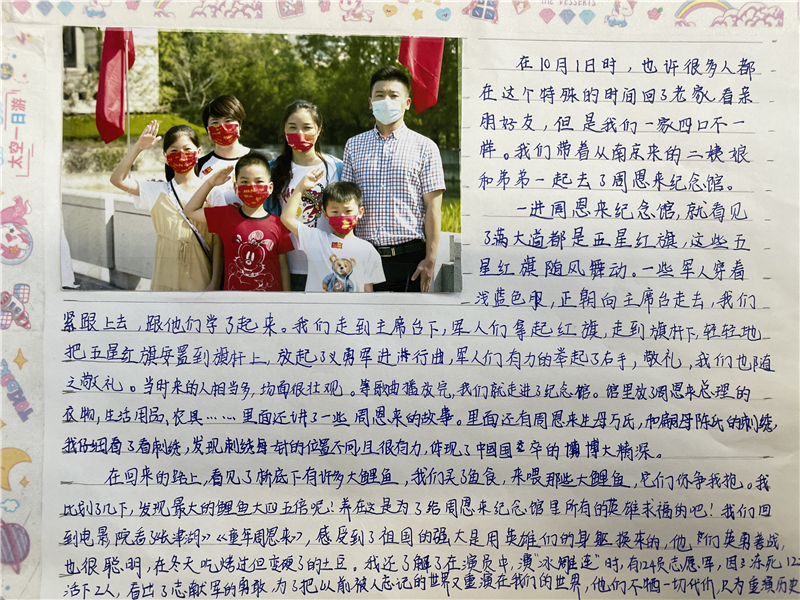 在10月1日时，也许很多人都
在这个特殊的时间回了老家，看亲
朋好友，但是我们一家四口不一
样。我们带着从南京来的二姨娘
和弟弟一起去了周恩来纪念馆。
一进周恩来纪念馆，就看见
了满大道都是五星红旗，这些五
星红旗随风舞动。一些军人穿着
浅蓝色服，正朝向主席台走去，我们
紧跟上去，跟他们学了起来。我们走到主席台下，军人们拿起红旗，走到旗杆下，轻轻地
把五星红旗安置到旗杆上，放起了义勇军进进行曲，军人们有力的举起了右手，敬礼，我们也随
之敬礼。当时来的人相当多，场面很壮观。等歌曲播放完，我们就走进了纪念馆。馆里放了周恩来总理的
衣物，生活用品，农具……里面还讲了一些周恩来的故事。里面还有周恩来生母万氏，和嗣母陈氏的刺绣，
我仔细看了看刺绣，发现刺绣每一针的位置不同且很有力，体现了中国国卒的博博大精深。
在回来的路上，看见了桥底下有许多大鲤鱼，我们买了鱼食，来喂那些大鲤鱼，它们你争我抢。我
比划了几下，发现最大的鲤鱼大四五倍呢！养在这是为了给周恩来纪念馆里所有的英雄求福的吧！我们回
到电影院看了《长津湖》《童年周恩来》，感受到了祖国的强大是用英雄们的身躯换来的，他们英勇善战，
也很聪明，在冬天吃烤过但变硬了的土豆。我还了解了在演员中，演“冰雕连”时，有124员志愿军，因冻死12
活下2人，看出了志献军的勇敢，为了把以前被人忘记的世界又重演在我们的世界，他们不牺一切代价，只为重演历史
太空一日游
THE DESSERTS